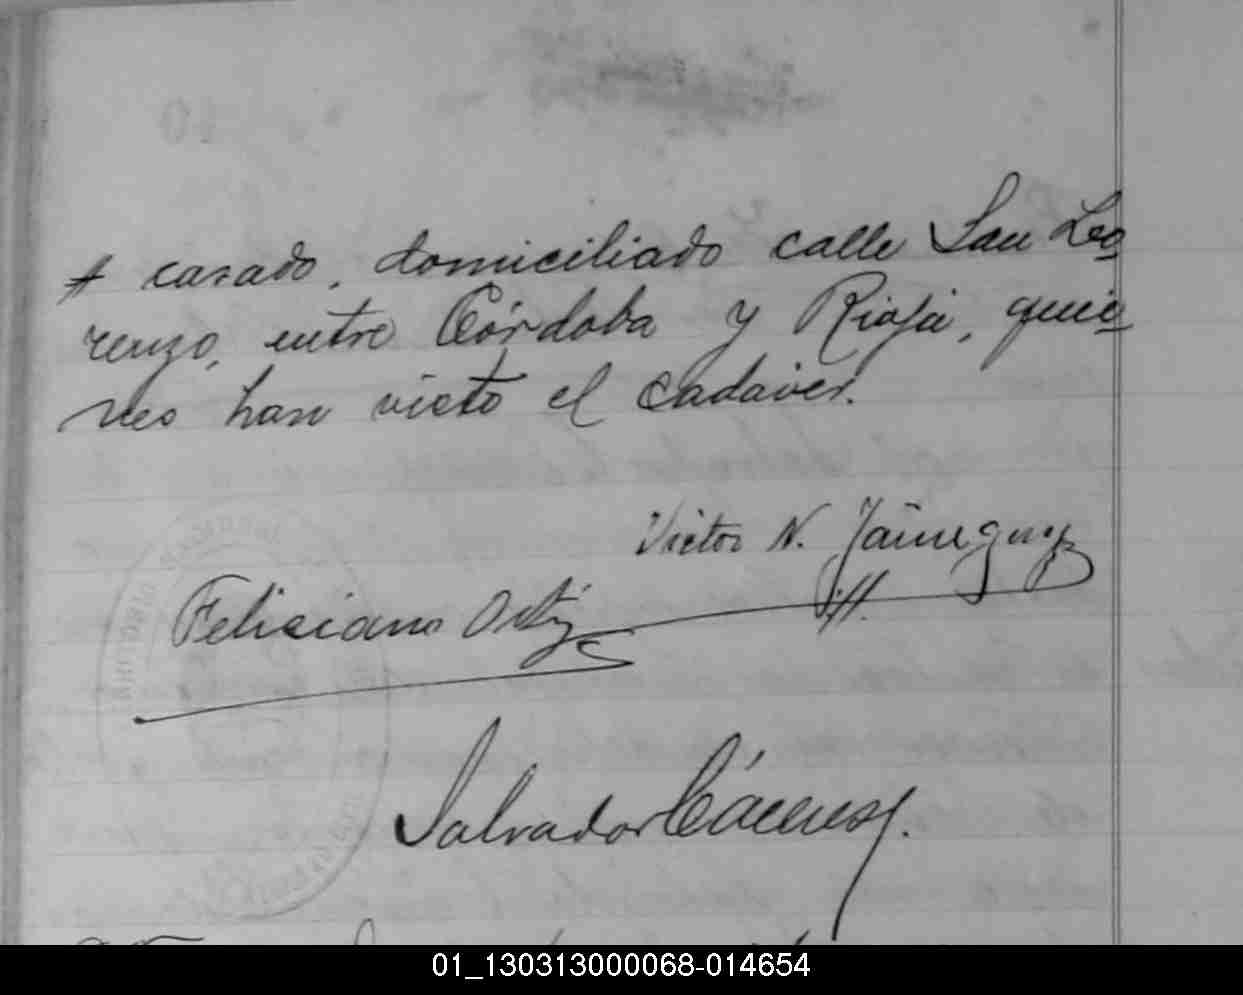 casado, domiciliado calle San Lo-
renzo, entre Córdoba y Rioja, quie-
nes han visto el cadáver.
Victor N.
Feliciano Ortiz
Salvador Cáceres
01_130313000068-014654